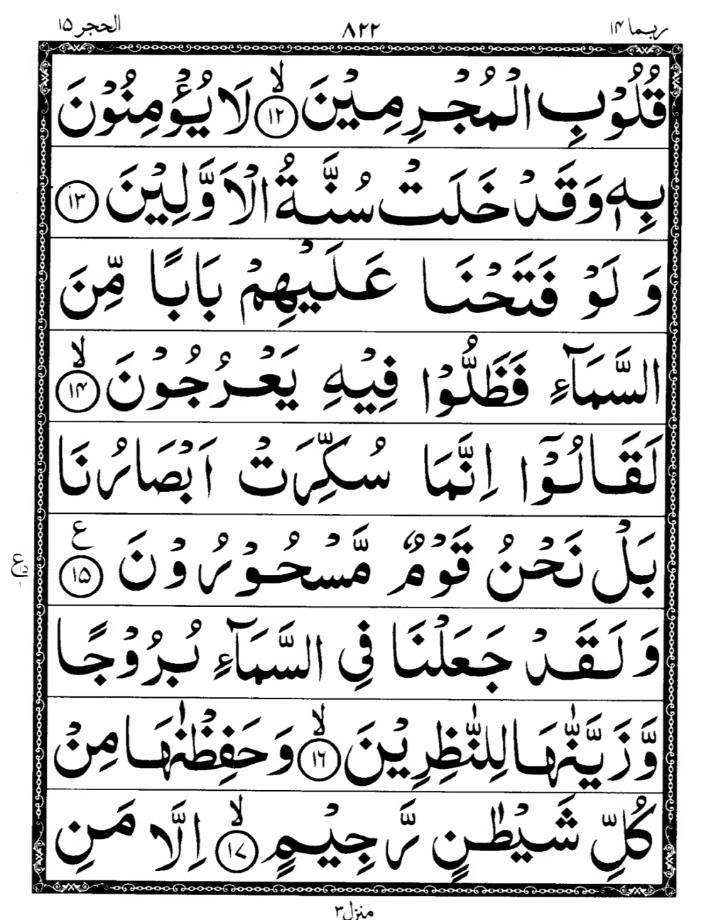 ربما ۱۴ ۸۲۲ الحجر ۱۵
قُلُوْبِ الْمُجْرِمِيْنَ ۙ﴿۱۲﴾ لَا يُؤْمِنُوْنَ
بِهٖ وَقَدْ خَلَتْ سُنَّةُ الْاَوَّلِيْنَ ﴿۱۳﴾
وَ لَوْ فَتَحْنَا عَلَيْهِمْ بَابًا مِّنَ
السَّمَآءِ فَظَلُّوْا فِيْهِ يَعْرُجُوْنَ ۙ﴿۱۴﴾
لَقَالُوْۤا اِنَّمَا سُكِّرَتْ اَبْصَارُنَا
بَلْ نَحْنُ قَوْمٌ مَّسْحُوْرُوْنَ ﴿۱۵﴾ ع
وَلَقَدْ جَعَلْنَا فِي السَّمَآءِ بُرُوْجًا
وَّزَيَّنّٰهَا لِلنّٰظِرِيْنَ ۙ﴿۱۶﴾ وَحَفِظْنٰهَا مِنْ
كُلِّ شَيْطٰنٍ رَّجِيْمٍ ۙ﴿۱۷﴾ اِلَّا مَنِ
منزل ۳